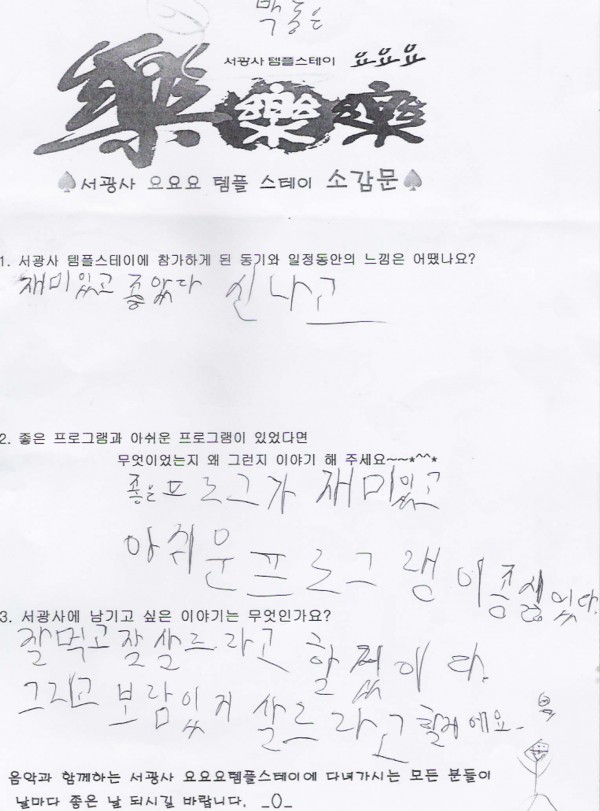 박동은
서광사 템플스테이 요요요
樂樂樂
서광사 요요요 템플 스테이 소감문
1. 서광사 템플스테이에 참가하게 된 동기와 일정동안의 느낌은 어땠나요?
재미있고 좋았다 신나고
2. 좋은 프로그램과 아쉬운 프로그램이 있었다면
무엇이었는지 왜 그런지 이야기 해 주세요~~*^^*
좋은프로그가 재미있고
아쉬운프로그램이 좀 싫었다.
3. 서광사에 남기고 싶은 이야기는 무엇인가요?
잘먹고잘살르라고 할 이다.
그리고 보람있게 살르라고 할게에요.
음악과 함께하는 서광사 요요요템플스테이에 다녀가시는 모든 분들이
날마다 좋은 날 되시길 바랍니다. _0_